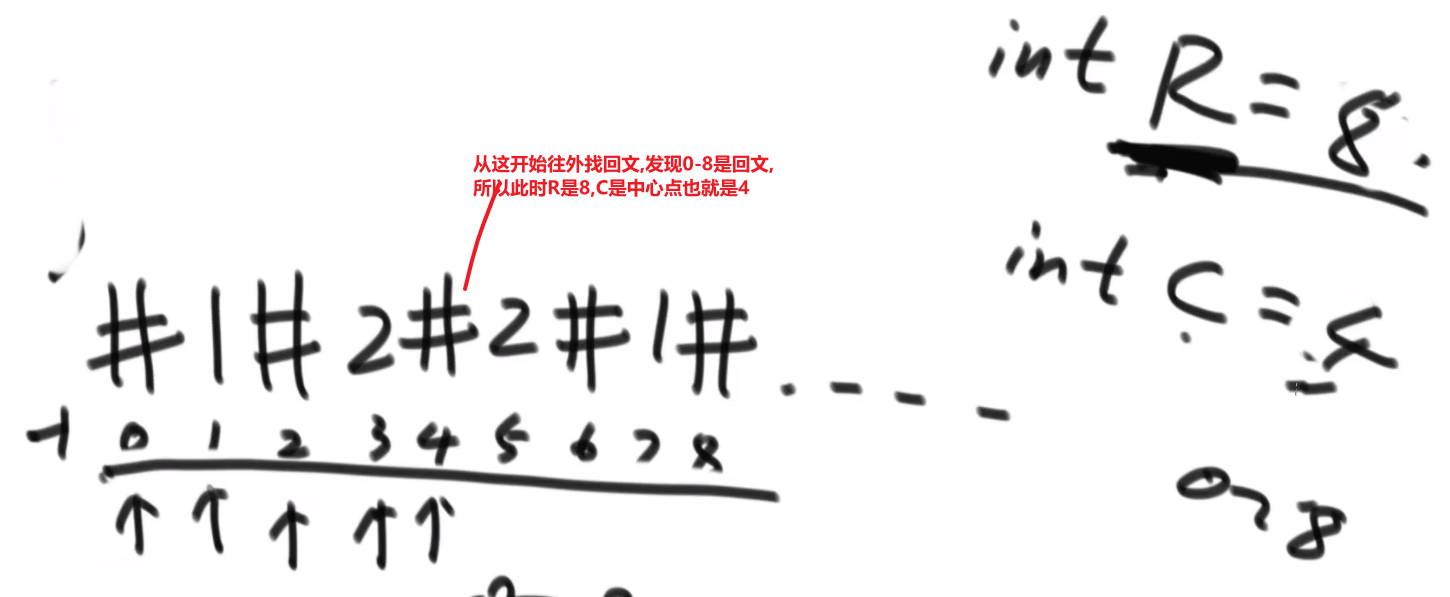 int R = 8.
从这开始往外找回文,发现0-8是回文,
所以此时R是8,C是中心点也就是4
int C = 4
#1#2#2#1#
-1 0 1 2 3 4 5 6 7 8
0~8